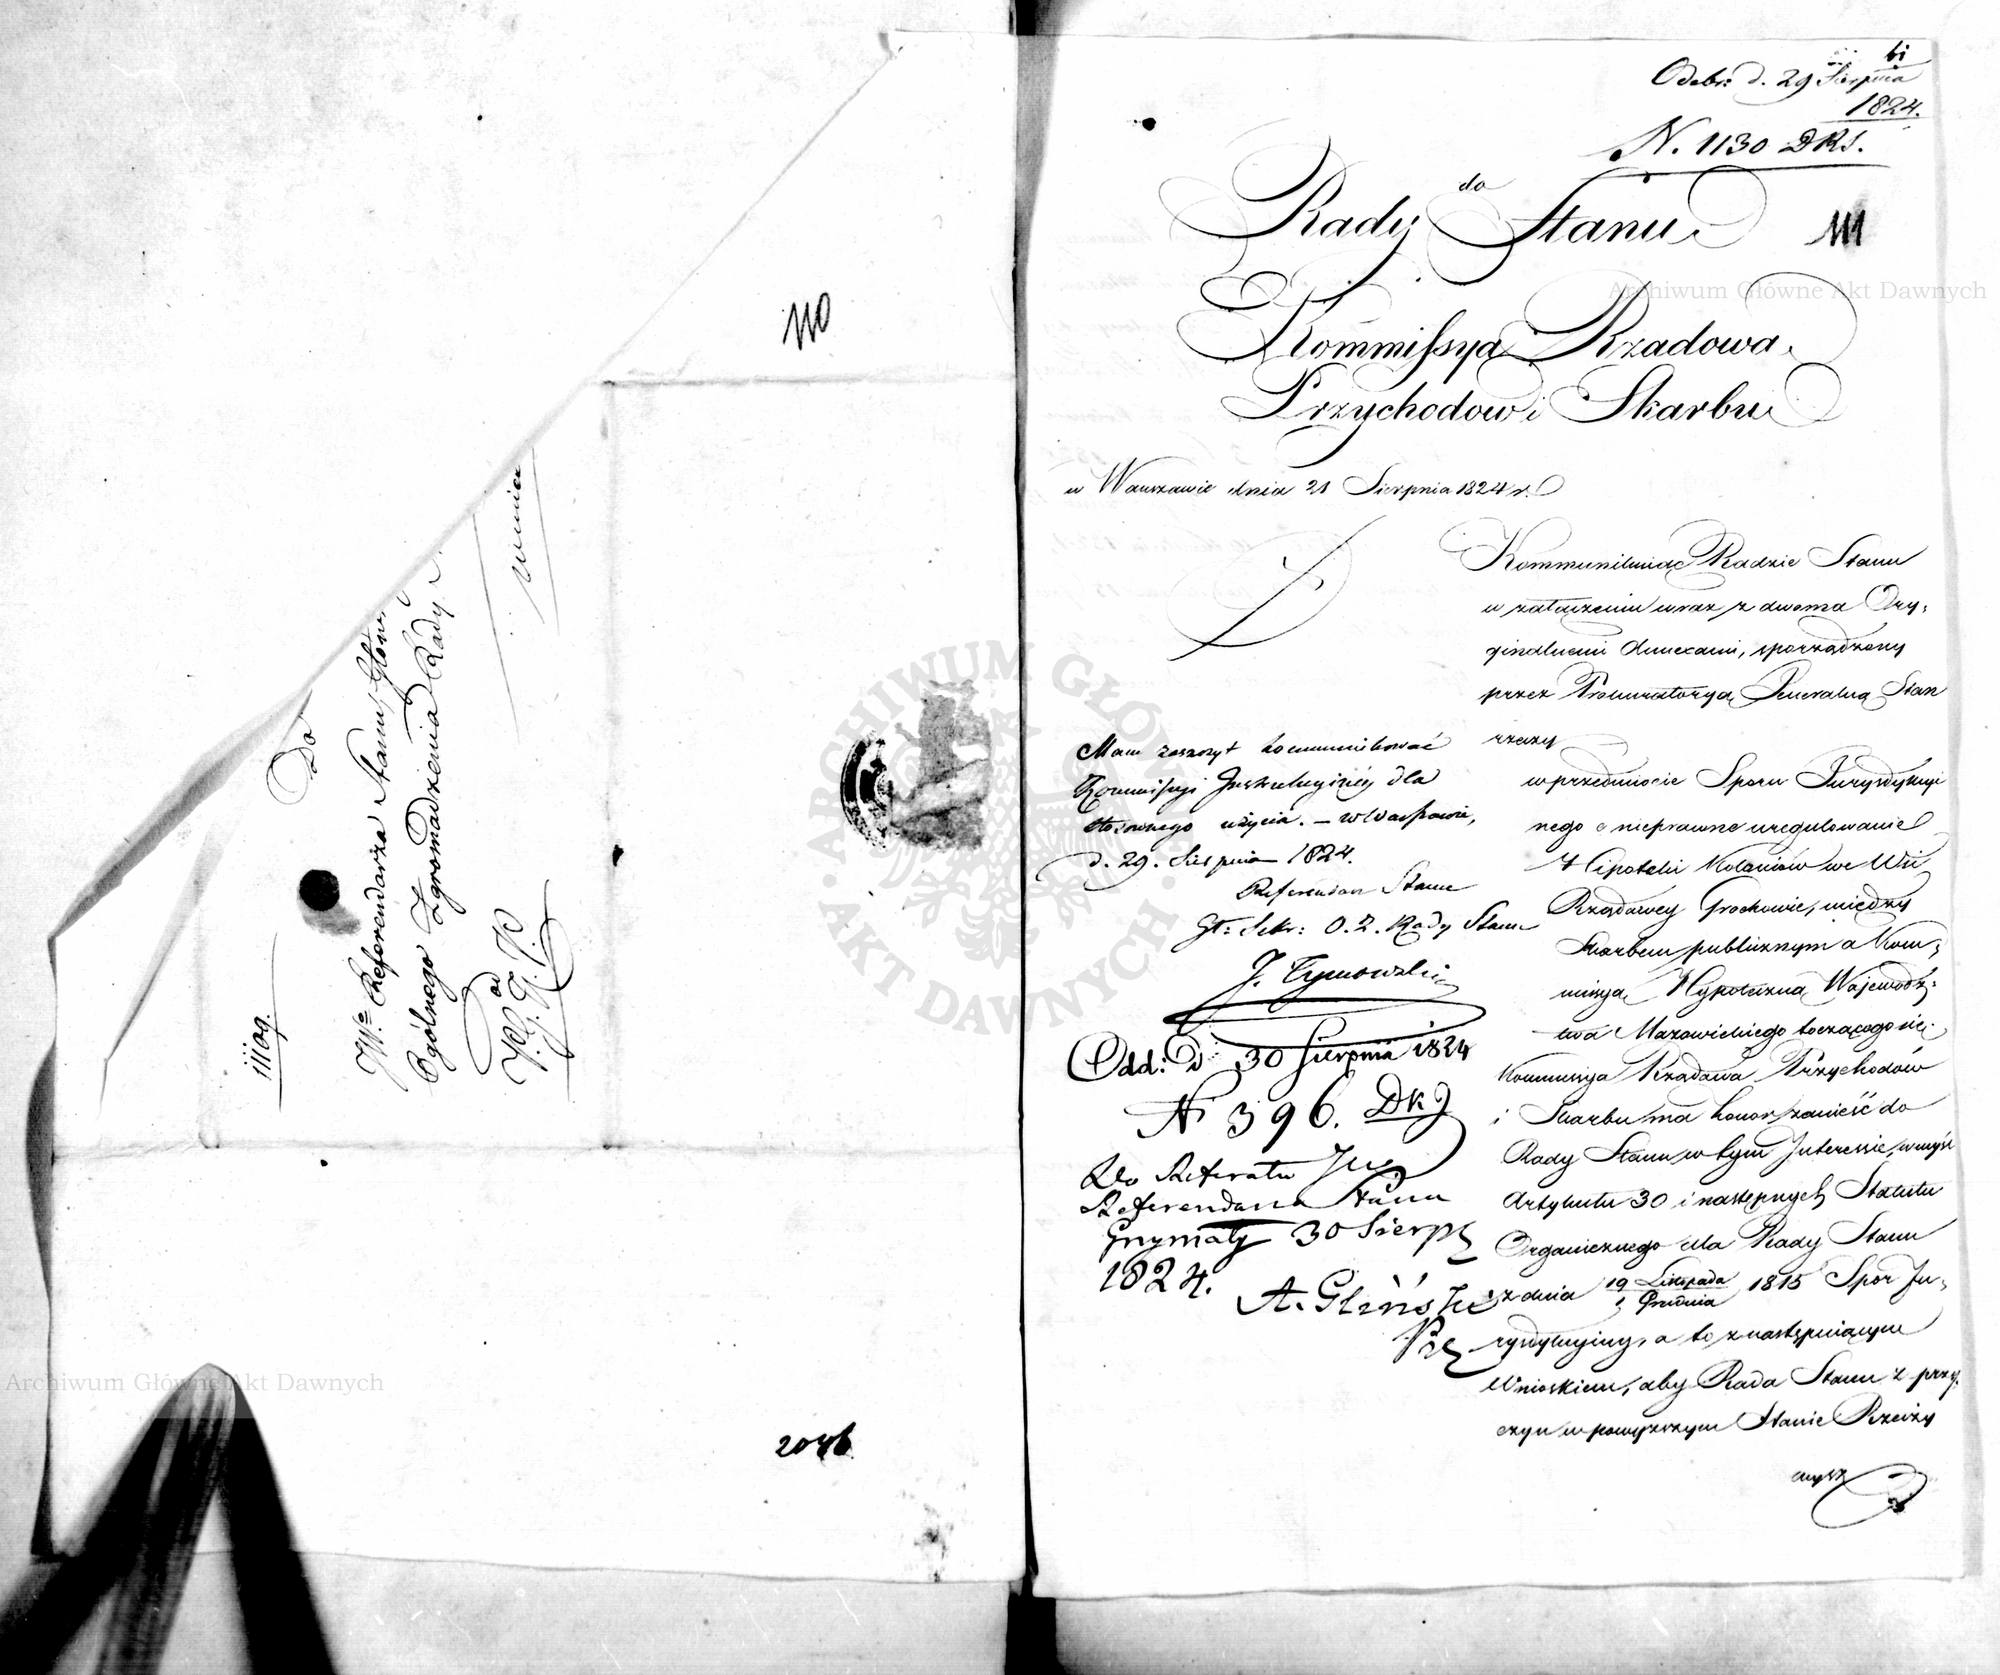 110
Do
JWo Referendarza Stanu, Głown:
Ogólnego Zgromadzenia Rady
od
K. G. G. K.
11109.
2046
61
Odebr: d. 29 Sierpnia
1824.
N. 1130 DRS.
111
do
Rady Stanu
Kommissya Rządowa
Przychodow i Skarbu
w Warszawie dnia 21 Sierpnia 1824 r.
Kommunikuiąc Radzie Stanu
w załączeniu wraz z dwoma Ory,
ginalnemi Annexami, sporządzony
przez Prokuratoryą Jeneralną Stan
rzeczy
w przedmiocie Sporu Juryzdykcyi
nego o nieprawne uregulowanie
Hipoteki Kolonistów we Wsi
Rządowey Grochowie, między
Skarbem publicznym a Kom,
missyą Hypoteczną Wojewódz:
twa Mazowieckiego toczącego się.
Kommissya Rządowa Przychodów
i Skarbu ma honor zanieść do
Rady Stanu w tym Interessie, w myśl
Artykułu 30 i następnych Statutu
Organicznego dla Rady Stanu
z dnia 19 Listopada / 1 Grudnia 1815 Spór Ju,
rysdykcyiny, a to z następuiącym
Wnioskiem, aby Rada Stanu z przy,
czyn w powyższym Stanie Rzeczy
wyż
Mam zaszczyt kommunikować
Kommissyi Instrukcyiney dla
stosownego użycia. – w Warszawie,
d. 29. Sierpnia 1824.
Referendarz Stanu
Gł: Sekr: O. Z. Rady Stanu
J. Tymowski
Odd: D. 30 Sierpnia 1824
N 396. DKJ
Do Referatu JW
Referendarza Stanu
Grymały 30 Sierp
1824.
A. Gliński
Pre
ARCHIWUM GŁÓWNE AKT DAWNYCH
Archiwum Główne Akt Dawnych
Archiwum Główne Akt Dawnych